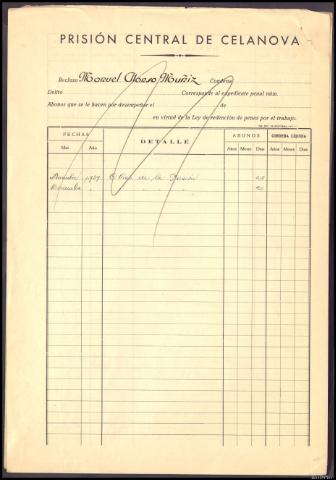 PRISIÓN CENTRAL DE CELANOVA
Recluso Manuel Alonso Muñiz Condena
Delito Corresponde al expediente penal núm.
Abonos que se le hacen por desempeñar el de
en virtud de la Ley de redención de penas por el trabajo.
FECHAS DETALLE ABONOS CONDENA LÍQUIDA
Mes Año Años Meses Días Años Meses Días
1939 Obras de la Prisión